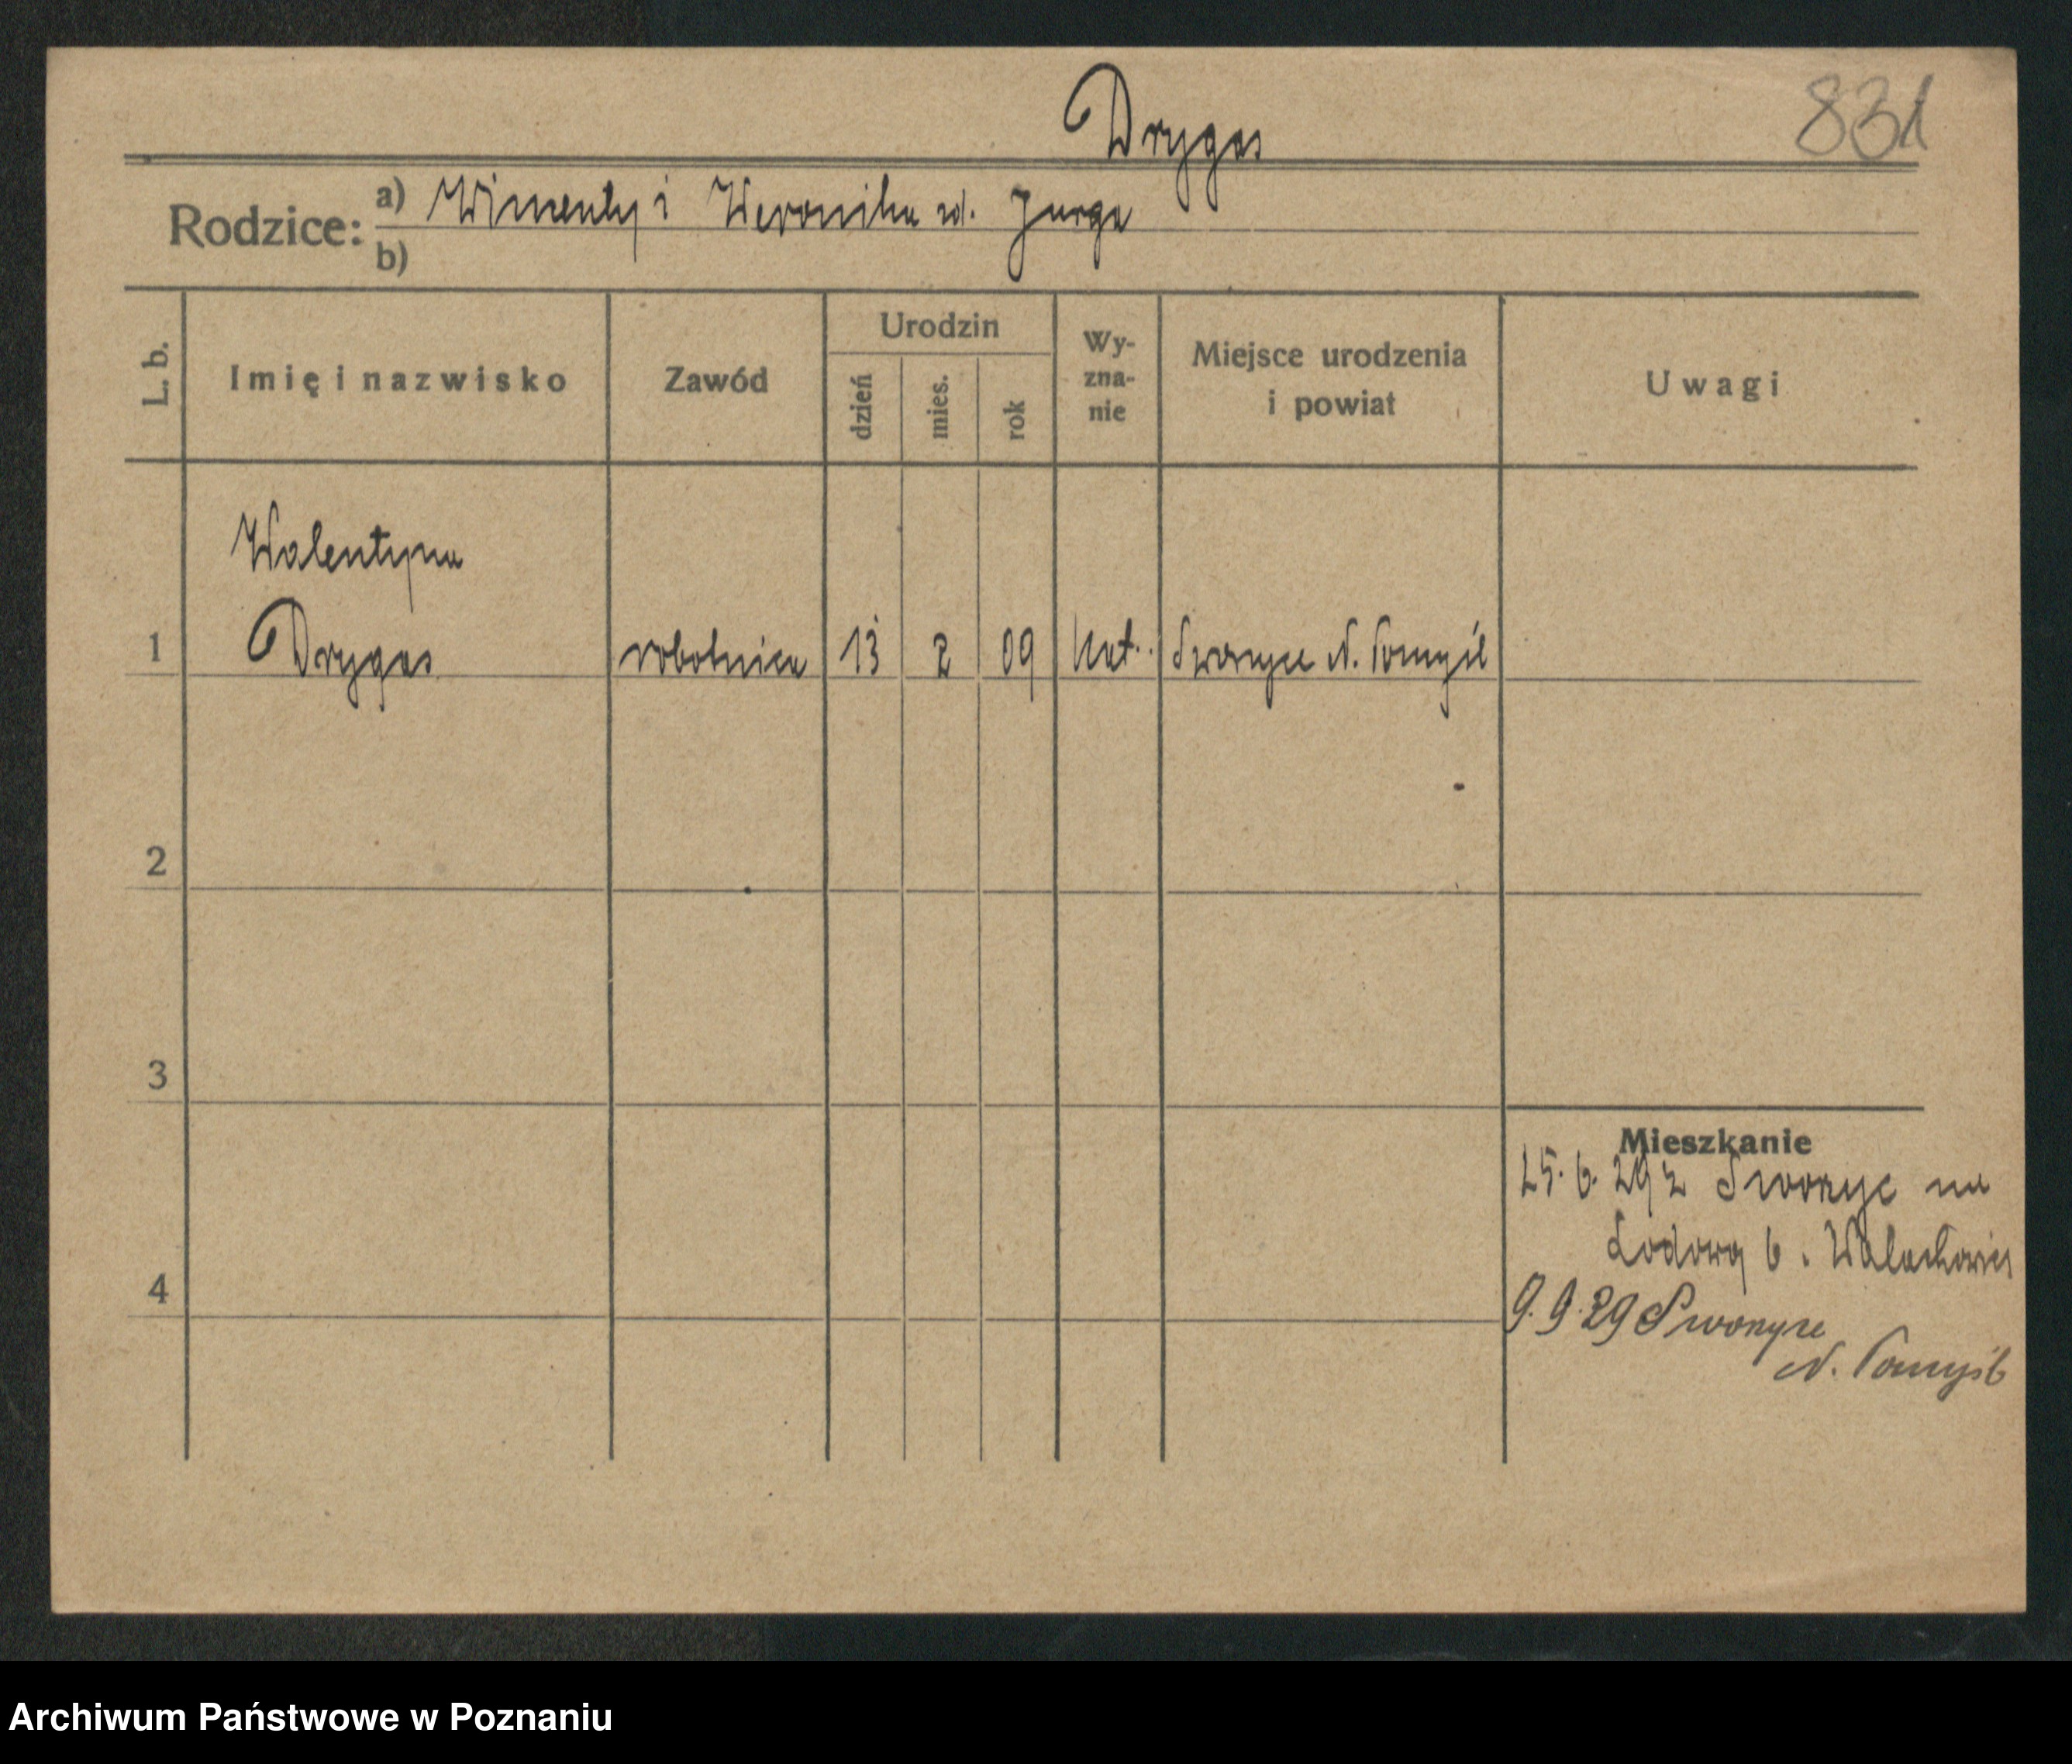 Drygas
831
Rodzice: a) Wincenty i Weronika zd. Jurga
b)
L. b. Imię i nazwisko Zawód Urodzin dzień mies. rok Wy-zna-nie Miejsce urodzenia i powiat Uwagi
Walentyna
1 Drygas robotnica 13 2 09 kat. Sworzyce N. Tomyśl
2
3
Mieszkanie
25.6.29 z Sworzyc na
Lodową 6.
4
9.9.29 Sworzyce
N. Tomyśl
Archiwum Państwowe w Poznaniu